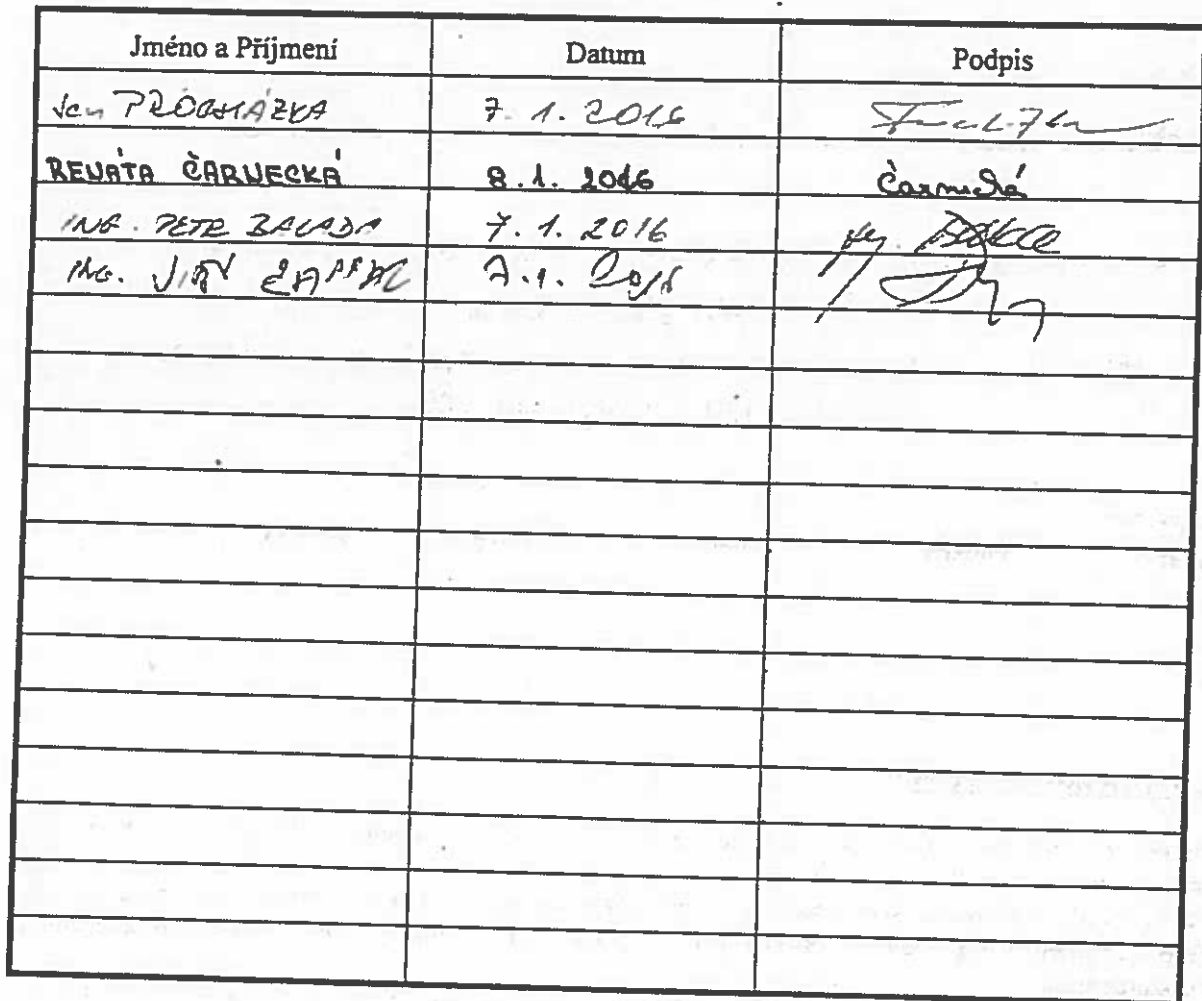 Jméno a Příjmení Datum Podpis
Jan PROCHÁZKA 7. 1. 2016
RENÁTA ČARNECKÁ 8. 1. 2016 Čarnecká
ING. PETR BALADA 7. 1. 2016 Ing.
ING. JIŘÍ 7. 1. 2016